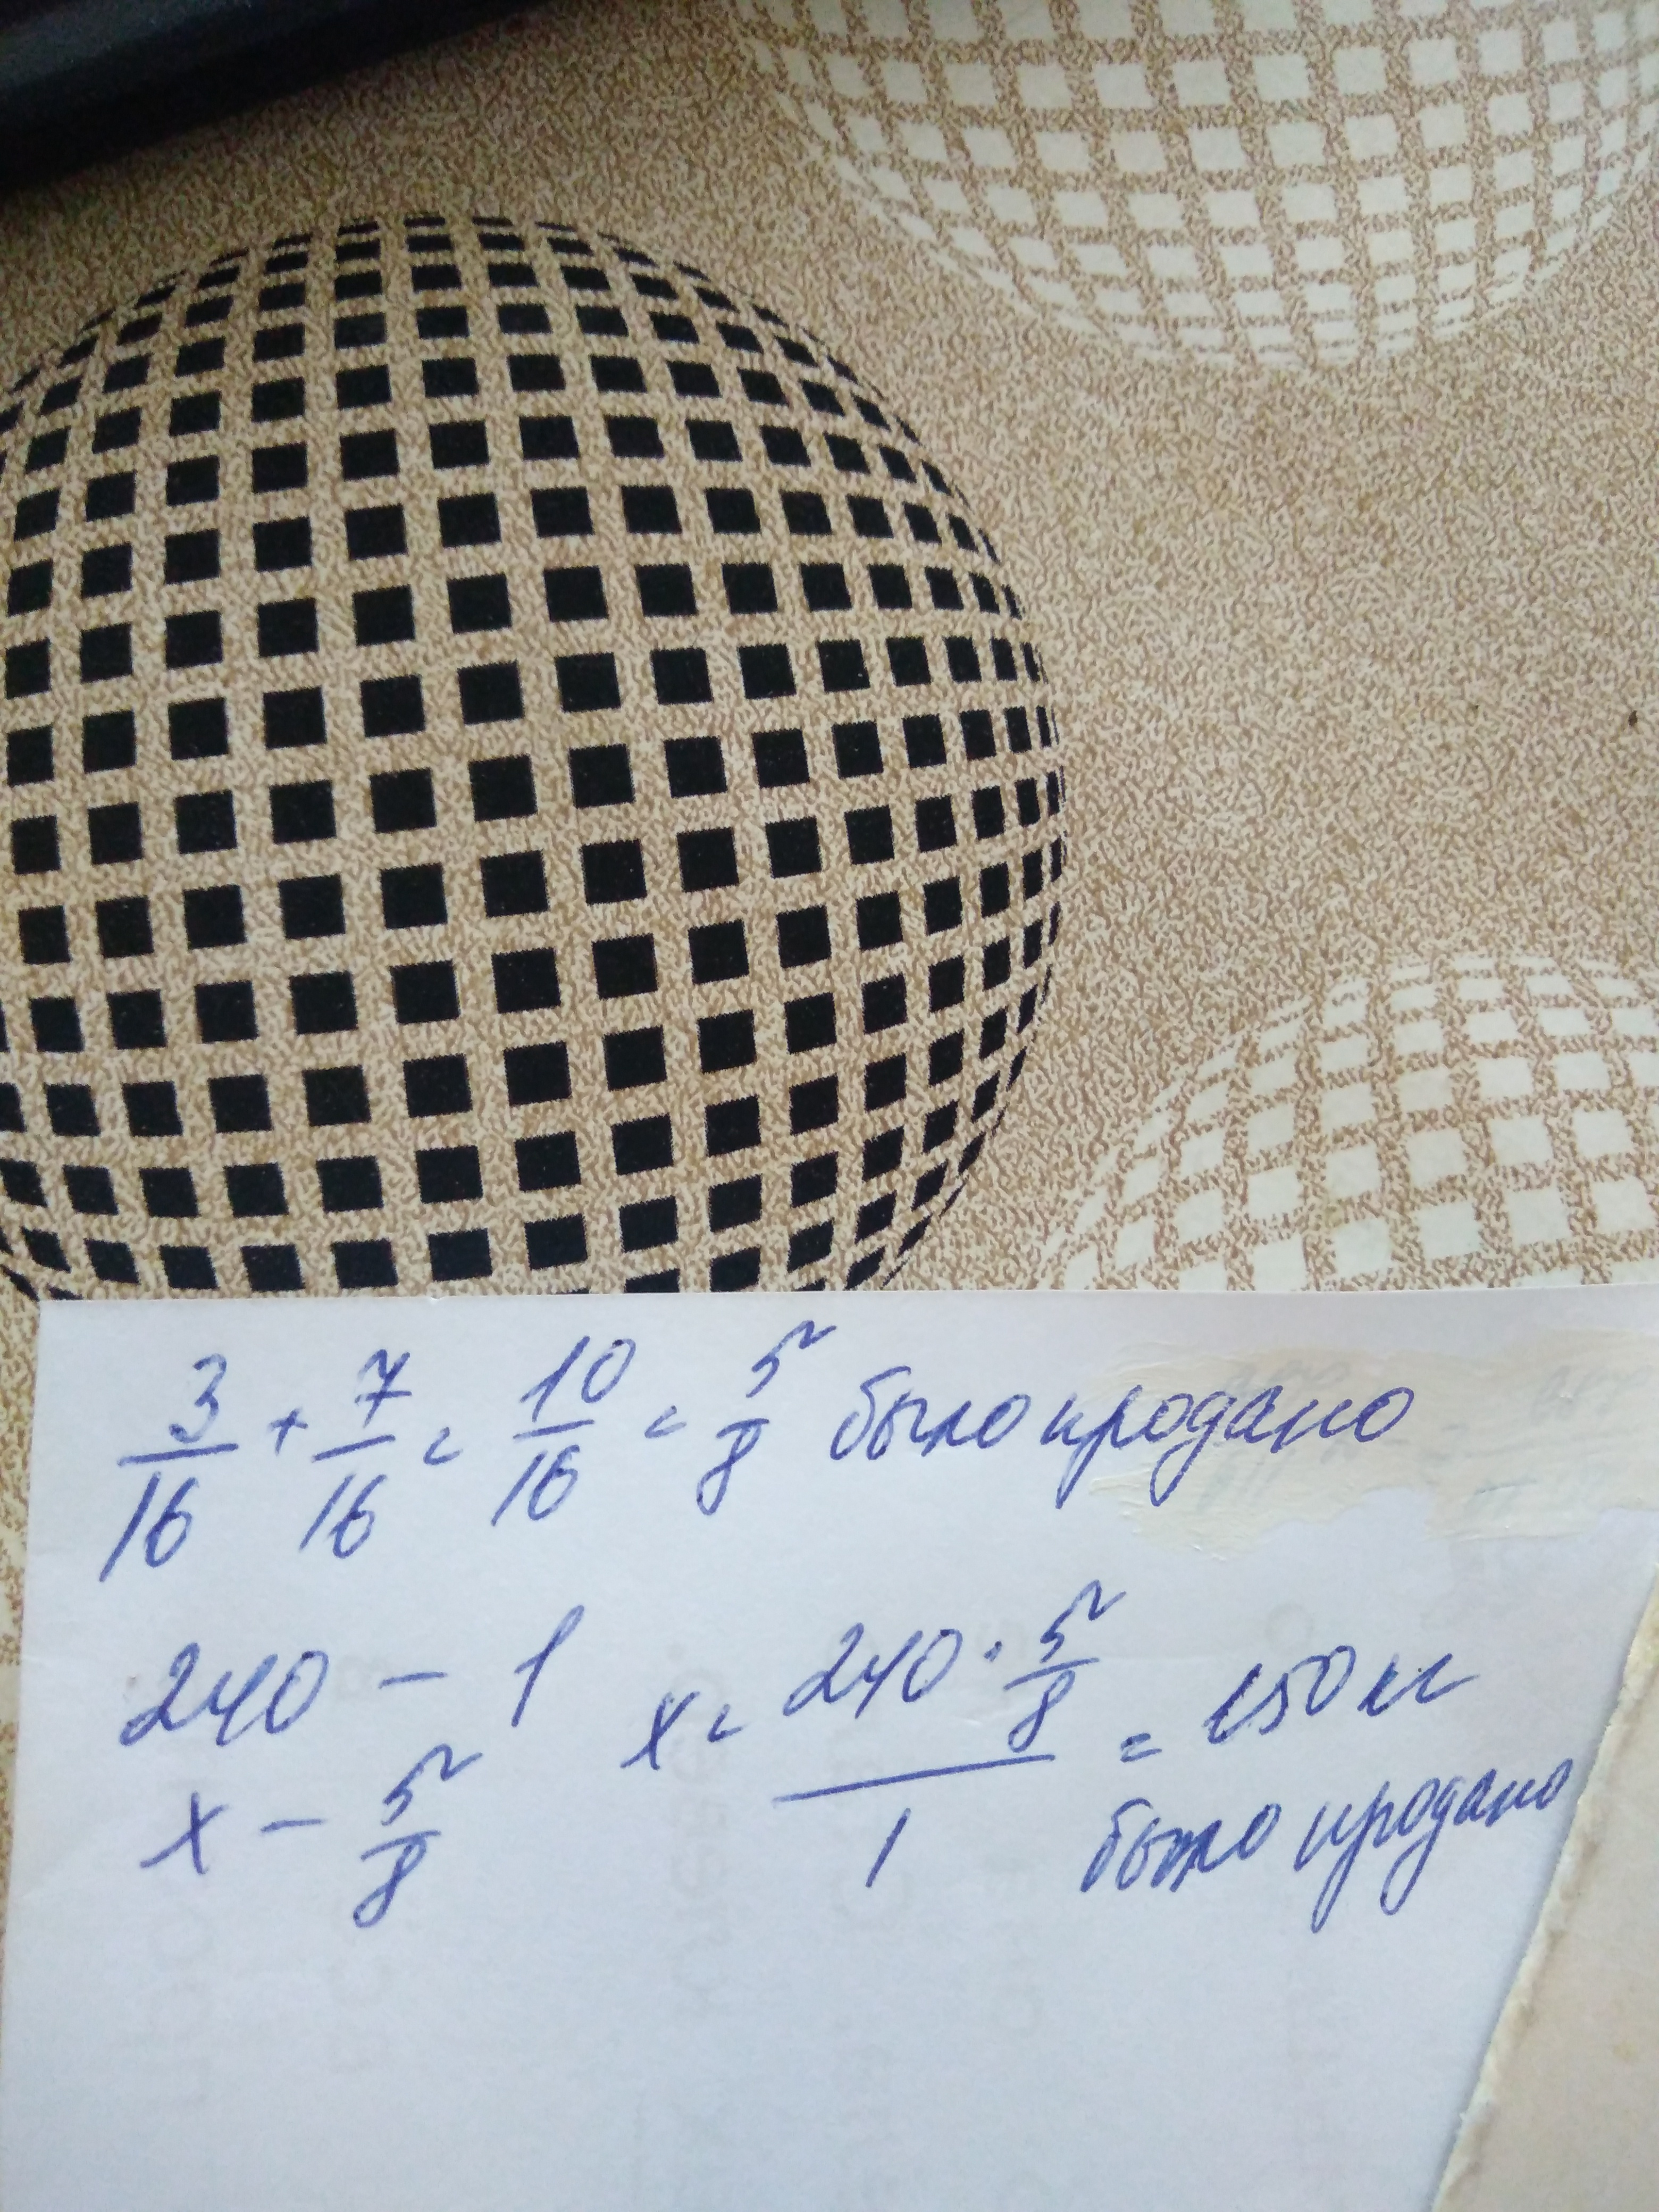 3/16 + 7/16 = 10/16 = 5/8 было продано
240 - 1 x = 240 · 5/8 / 1 = 150 кг
x - 5/8 было продано